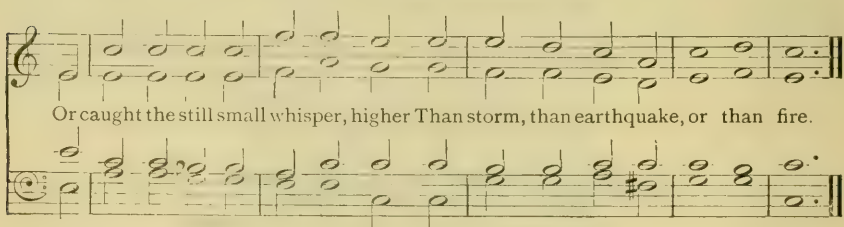 Or caught the still small whisper, higher Than storm, than earthquake, or than fire.